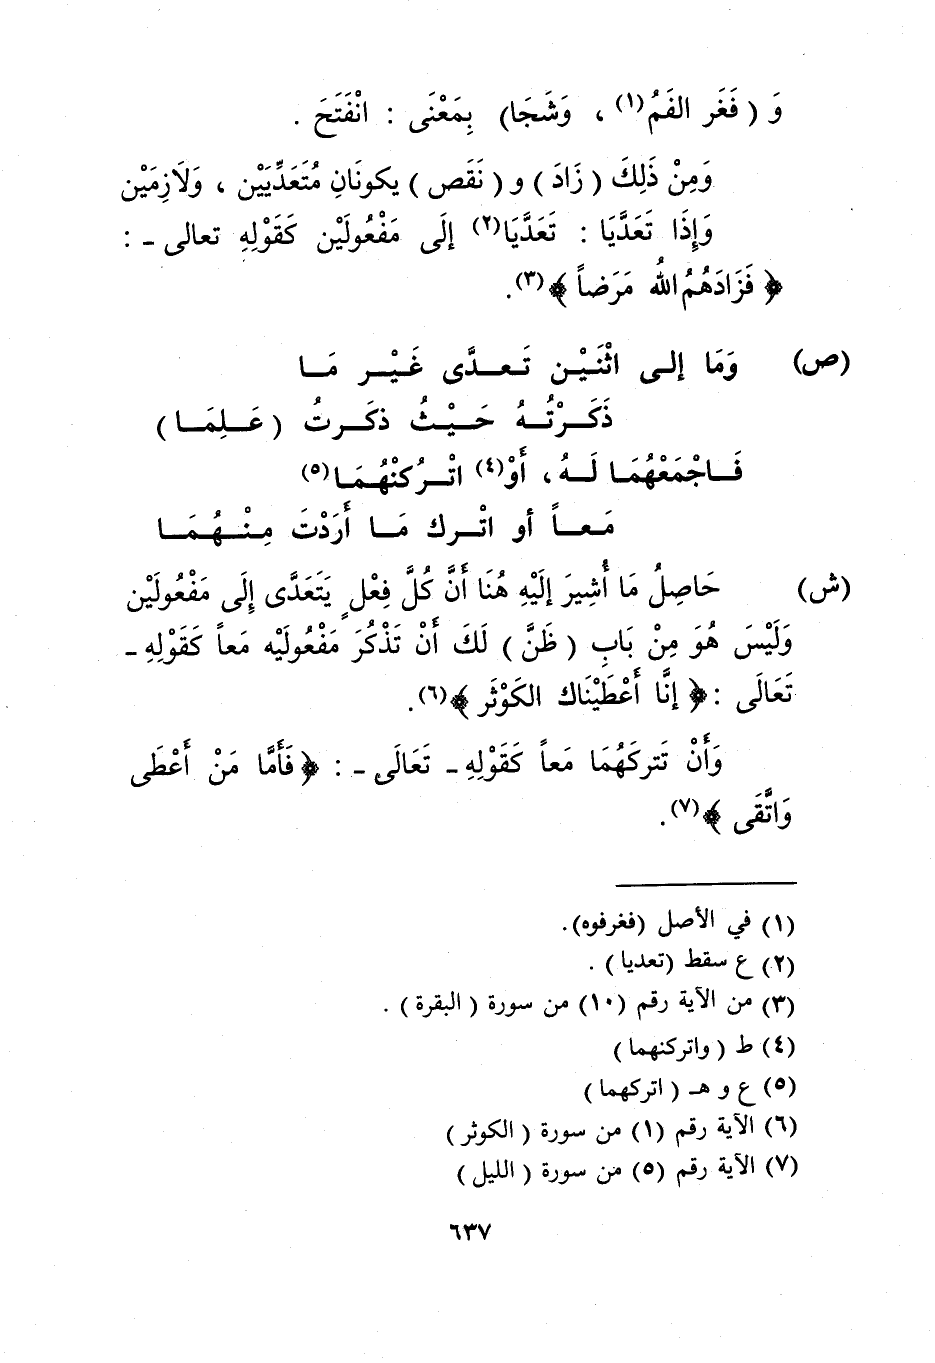 وَ ( فَغَر الفَمُ(١) ، وَشَجَا) بِمَعْنَى : انْفَتَحَ .
وَمِنْ ذَلِكَ ( زَادَ ) و ( نَقَص ) يكونَانِ مُتَعَدِّيَيْن ، وَلَازِمَيْن
وَإِذَا تَعَدَّيَا : تَعَدَّيَا(٢) إلَى مَفْعُولَيْن كَقَوْلِهِ تعالى - :
﴿ فَزَادَهُمُ اللهُ مَرَضاً ﴾(٣).
(ص) وَمَا إلى اثْنَيْن تَعدَّى غَيْر مَا
ذَكَرْتُهُ حَيْثُ ذكَرتُ ( عَلِمَا )
فَاجْمَعْهُمَا لَهُ ، أَوْ(٤) اتْرُكنْهُمَا(٥)
مَعاً أو اتْرك مَا أَرَدْتَ مِنْهُمَا
(ش) حَاصِلُ مَا أُشِيرَ إلَيْهِ هُنَا أَنَّ كُلَّ فِعْلٍ يَتَعَدَّى إِلَى مَفْعُولَيْن
وَلَيْسَ هُوَ مِنْ بَابِ ( ظَنَّ ) لَكَ أَنْ تَذْكُرَ مَفْعُولَيْه مَعاً كَقَوْلِهِ -
تَعَالَى : ﴿ إنَّا أَعْطَيْنَاك الكَوْثَر ﴾(٦).
وَأَنْ تَتركَهُمَا مَعاً كَقَوْلِهِ - تَعَالَى - : ﴿ فَأَمَّا مَنْ أَعْطَى
وَاتَّقَى ﴾(٧).
(١) في الأصل (فغرفوه).
(٢) ع سقط (تعديا ) .
(٣) من الآية رقم (١٠) من سورة ( البقرة ) .
(٤) ط ( واتركنهما )
(٥) ع و هـ ( اتركهما )
(٦) الآية رقم (١) من سورة ( الكوثر )
(٧) الآية رقم (٥) من سورة ( الليل )
٦٣٧